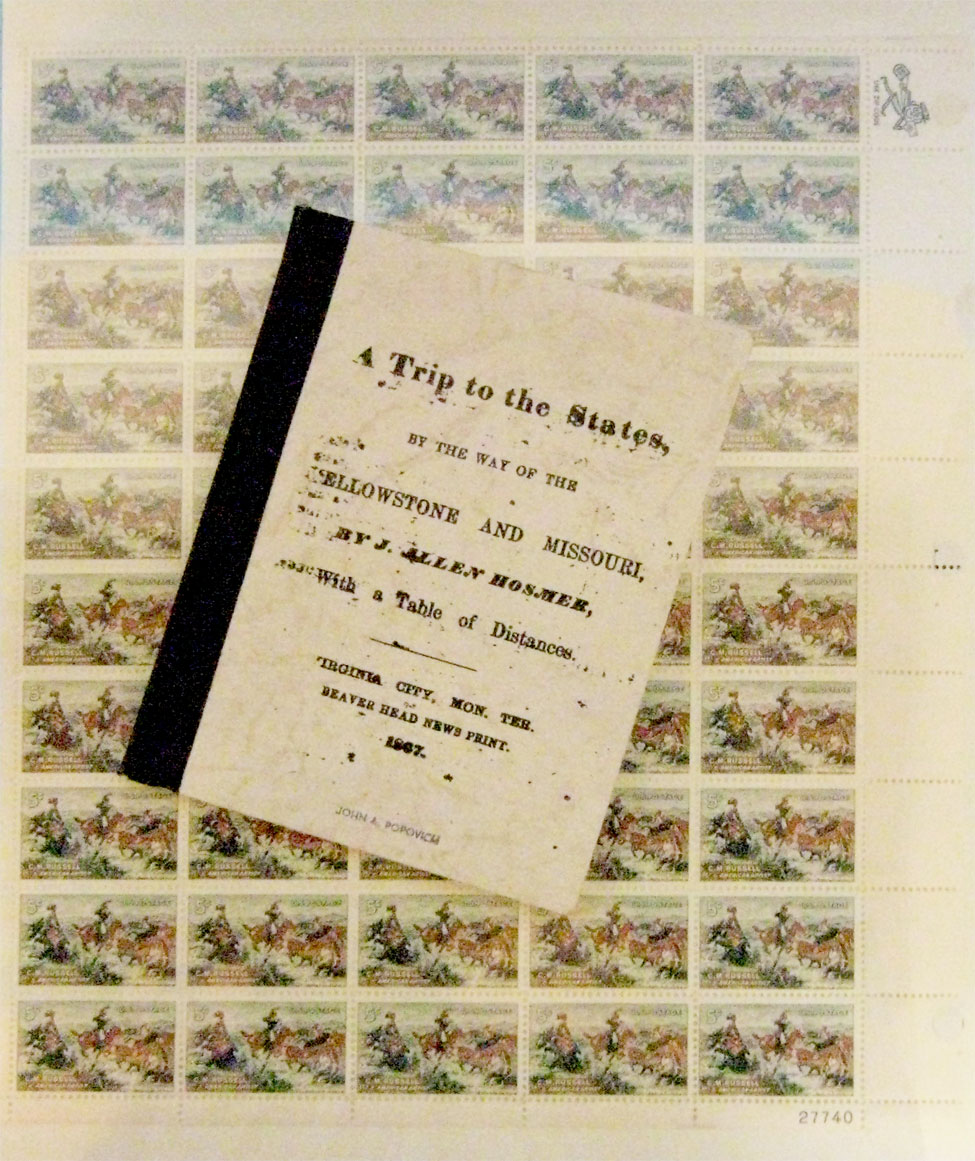 A Trip to the States,
BY THE WAY OF THE
ELLOWSTONE AND MISSOURI,
BY J. ALLEN HOSMER,
With a Table of Distances.
IRGINIA CITY, MON. TER.
BEAVER HEAD NEWS PRINT.
1867.
JOHN A. POPOVICH
5¢
C.M. RUSSELL
27740